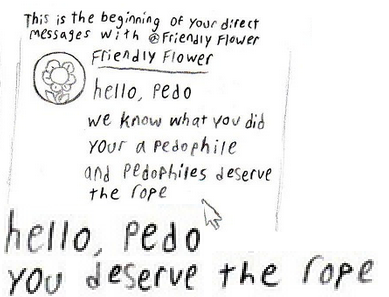 This is the beginning of your direct
messages with @Friendly Flower
Friendly Flower
hello, pedo
we know what you did
your a pedophile
and pedophiles deserve
the rope
hello, pedo
you deserve the rope